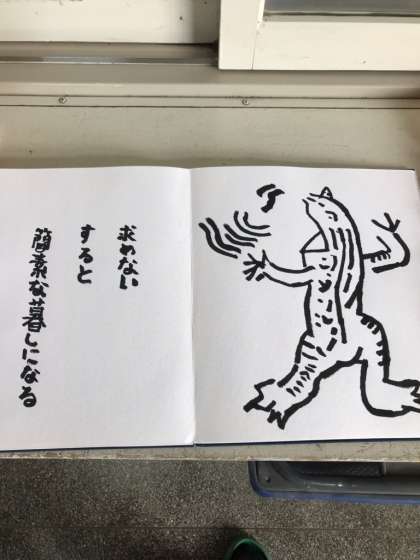 求めない
すると
簡素な暮しになる